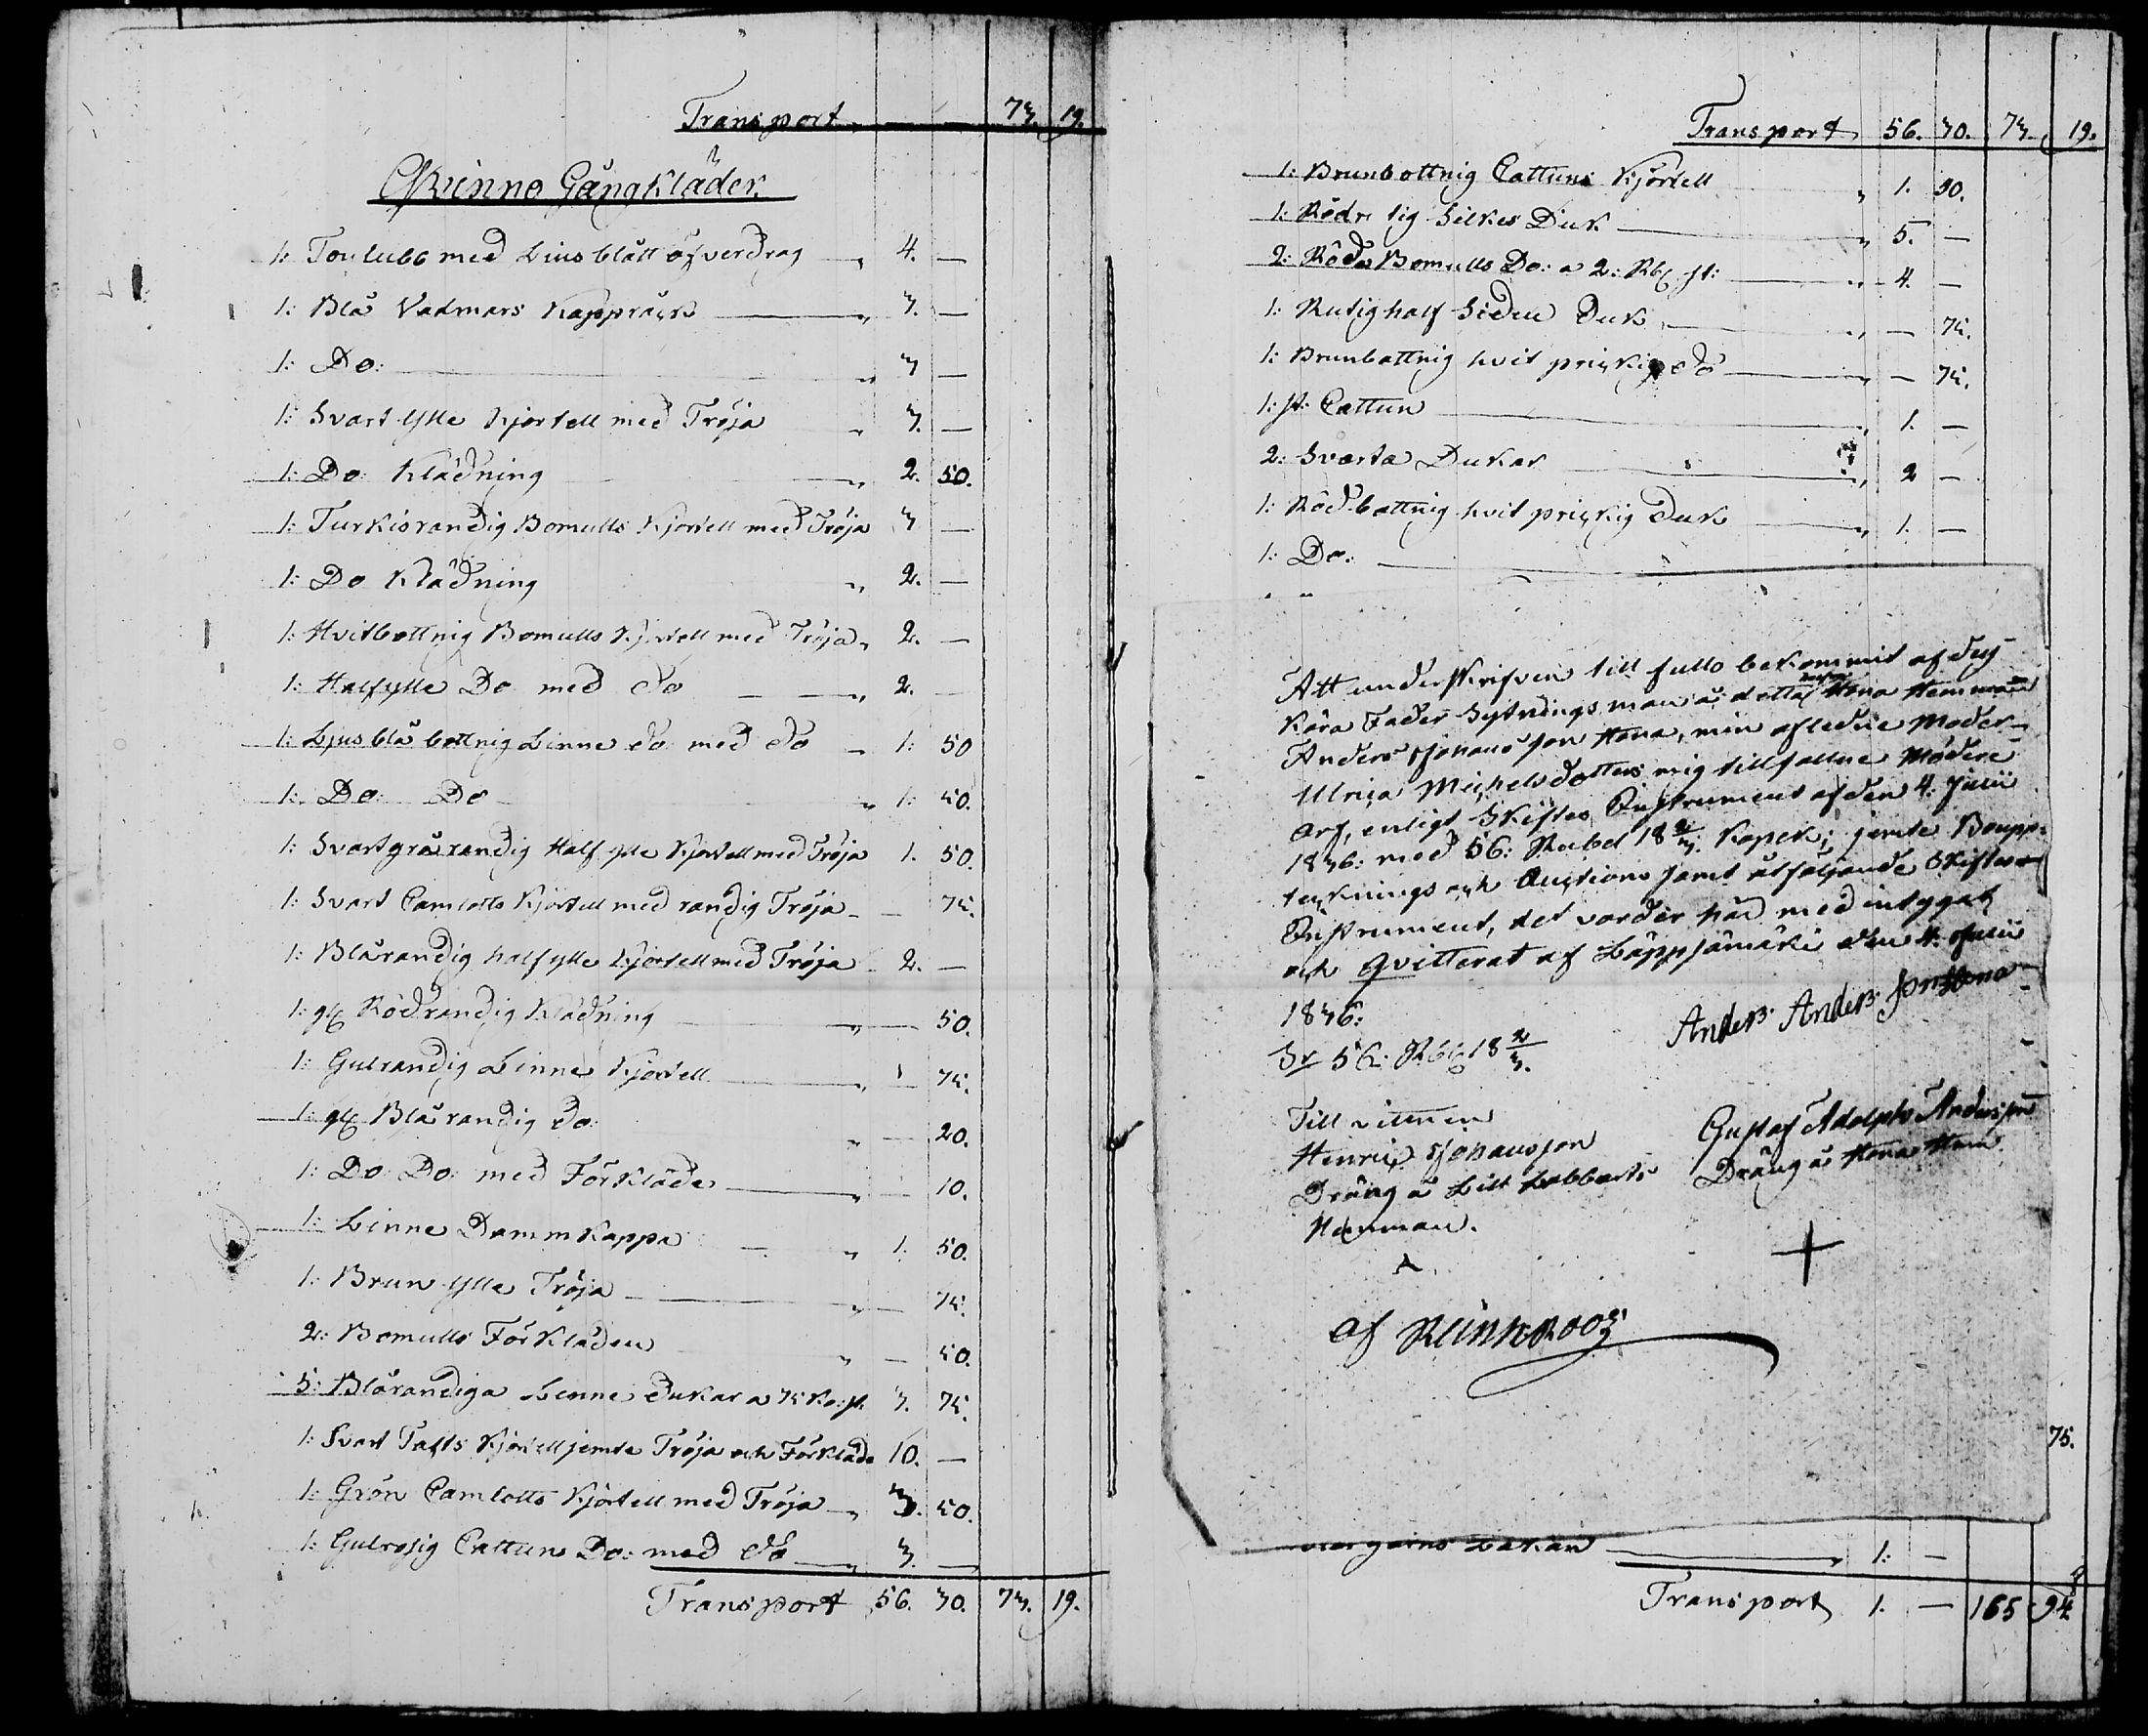 Transport — — 73. 19.
Qvinno Gångkläder.
1: Toulubb med Liusblått öfverdrag „ 4. —
1: Blå Vadmars Kappråck „ 3. —
1: Do: „ 3 —
1: Svart Ylle Kjortell med Tröja „ 3. —
1: Do Klädning „ 2. 50.
1: Turkisrandig Bomulls Kjortell med Tröja 3 —
1: Do Klädning „ 2. —
1: Hvitbottnig Bomulls Kjortell med Tröja „ 2. —
1: Halfylle Do med do „ 2. —
1: Ljusblå bottnig Linne do med do „ 1: 50
1: Do: Do „ 1: 50.
1: Svartgrårandig Half ylle Kjortell med Tröja 1. 50.
1: Svart Camlotts Kjortell med randig Tröja — 75.
1: Blårandig halfylle Kjortell med Tröja 2. —
1: gl Rödrandig Klädning „ — 50.
1: Gulrandig Linne Kjortell „ — 75.
1: gl Blårandig do „ — 20.
1: Do Do: med Förkläde „ — 10.
1: Linne Dammkappa „ 1. 50.
1: Brun Ylle Tröja „ — 75.
2: Bomulls Förkläden „ — 50.
5: Blårandiga Linne Dukar a 75 Ko: st. 3. 75.
1: Svart Tafts Kjortell jemte Tröja och Förkläde 10. —
1: Grön Camlotts Kjortell med Tröja „ 3. 50.
1: Gulrosig Cattuns Do: med do „ 3. —
Transport 56. 30. 73. 19.
Transport 56. 30. 73. 19.
1: Brunbottnig Cattuns Kjortell „ 1. 50.
1: Silkes Duk „ 5. —
2: Röda Bomulls Do: a 2: Rbl st: „ 4. —
1: Rutig half Siden Duk „ — 75.
1: Brunbottnig hvit prickig do „ — 75.
1: st: Cattun „ 1. —
2: Svarta Dukar „ 2 —
1: Rödbottnig hvit prickig Duk „ 1. —
1: Do:
Att underskrifven till fullo bekommit af dess
Kära Fader Sytningsman å detta Hona Hemman
Anders Johansson Hona, min afledne Moder
Ulrica Michelsdotters mig tillfallne Möderne
Arf, enligt Skiftes Instrument af den 4: Julii
1836: med 56: Rubel 18 2/3. Kopek; jemte Boupp-
tecknings och Auctions samt åtföljande Skiftes
Instrument, det varder här med intygat
och qvitterat af Läppjämäki den 4: Julii
1836:
Anders Andersson Hona
Sr 56: Rbl 18 2/3.
Till vittnen
Henric Johansson
Dräng å Lill Labbarts
Hemman.
Gustaf Adolph Andersson
Dräng å Hona Hem
+
af Reinkroos
75.
Lakan „ 1: —
Transport 1. — 165 94